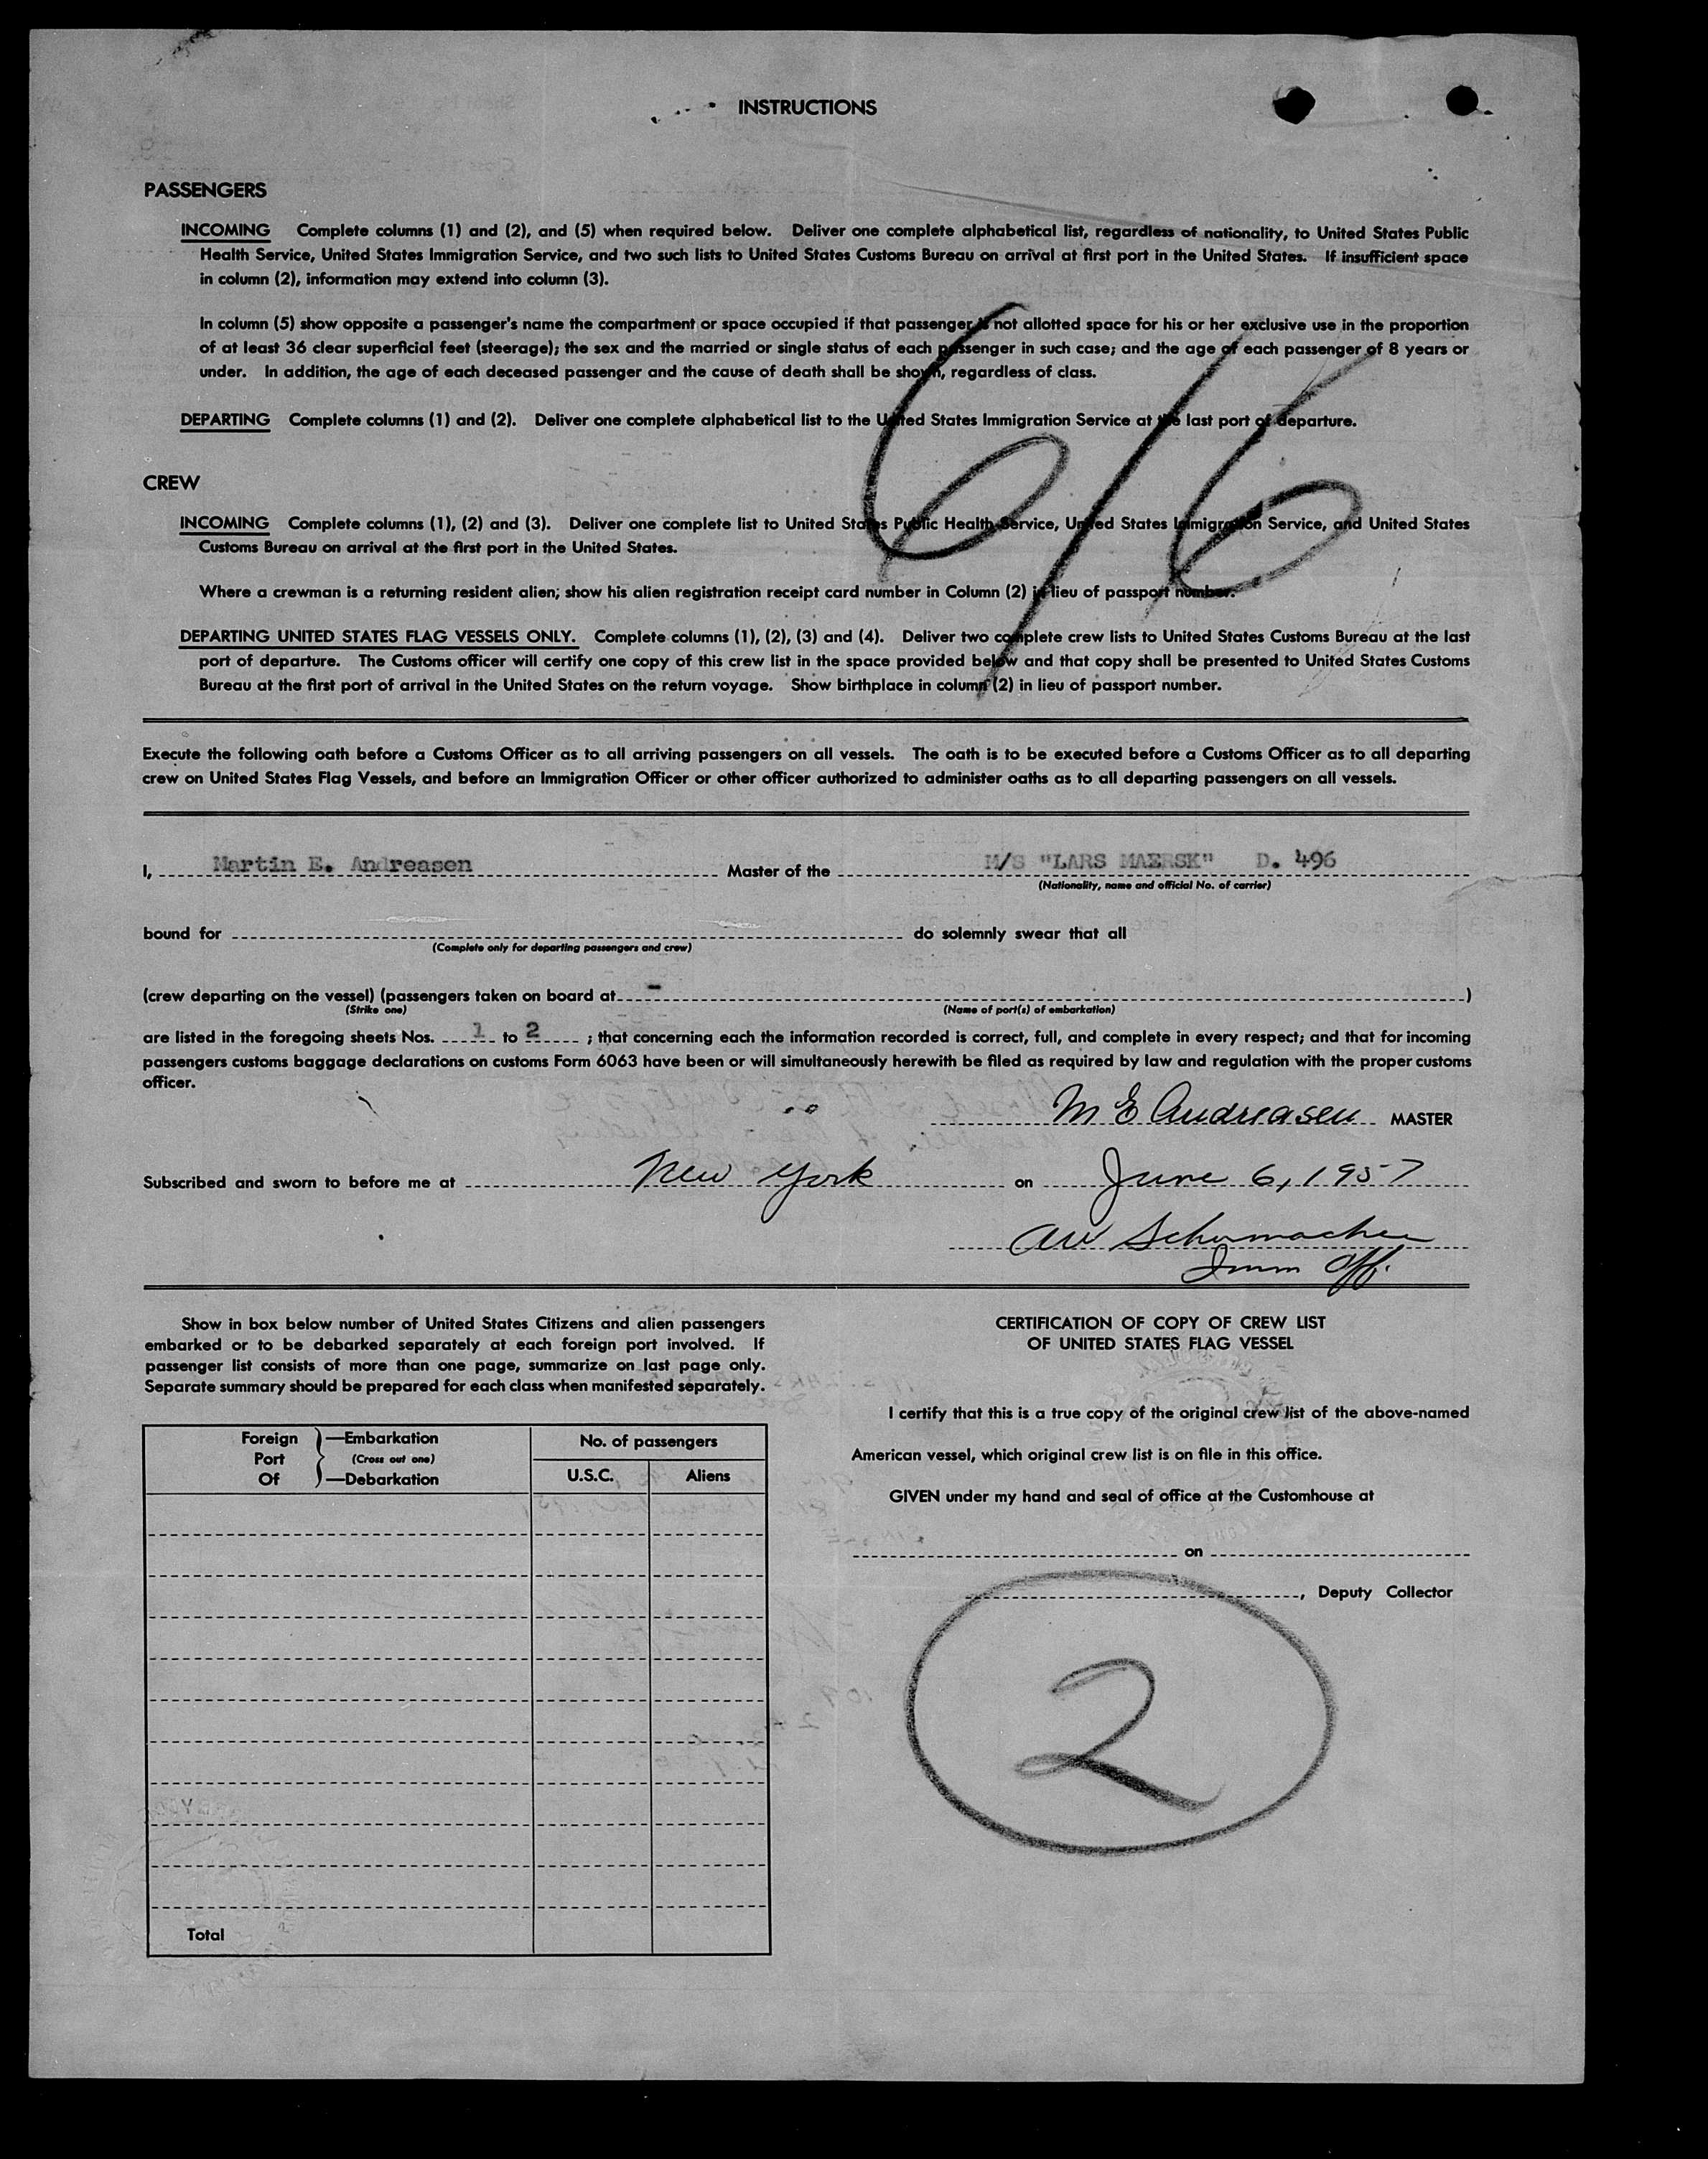 INSTRUCTIONS
PASSENGERS
INCOMING Complete columns (1) and (2), and (5) when required below. Deliver one complete alphabetical list, regardless of nationality, to United States Public
Health Service, United States Immigration Service, and two such lists to United States Customs Bureau on arrival at first port in the United States. If insufficient space
in column (2), information may extend into column (3).
In column (5) show opposite a passenger's name the compartment or space occupied if that passenger is not allotted space for his or her exclusive use in the proportion
of at least 36 clear superficial feet (steerage); the sex and the married or single status of each passenger in such case; and the age of each passenger of 8 years or
under. In addition, the age of each deceased passenger and the cause of death shall be shown, regardless of class.
DEPARTING Complete columns (1) and (2). Deliver one complete alphabetical list to the United States Immigration Service at the last port of departure.
6/6
CREW
INCOMING Complete columns (1), (2) and (3). Deliver one complete list to United States Public Health Service, United States Immigration Service, and United States
Customs Bureau on arrival at the first port in the United States.
Where a crewman is a returning resident alien; show his alien registration receipt card number in Column (2) in lieu of passport number.
DEPARTING UNITED STATES FLAG VESSELS ONLY. Complete columns (1), (2), (3) and (4). Deliver two complete crew lists to United States Customs Bureau at the last
port of departure. The Customs officer will certify one copy of this crew list in the space provided below and that copy shall be presented to United States Customs
Bureau at the first port of arrival in the United States on the return voyage. Show birthplace in column (2) in lieu of passport number.
Execute the following oath before a Customs Officer as to all arriving passengers on all vessels. The oath is to be executed before a Customs Officer as to all departing
crew on United States Flag Vessels, and before an Immigration Officer or other officer authorized to administer oaths as to all departing passengers on all vessels.
I, Martin E. Andreasen Master of the M/S "LARS MAERSK" D. 496
(Nationality, name and official No. of carrier)
bound for do solemnly swear that all
(Complete only for departing passengers and crew)
(crew departing on the vessel) (passengers taken on board at - )
(Strike one) (Name of port(s) of embarkation)
are listed in the foregoing sheets Nos. 1 to 2 ; that concerning each the information recorded is correct, full, and complete in every respect; and that for incoming
passengers customs baggage declarations on customs Form 6063 have been or will simultaneously herewith be filed as required by law and regulation with the proper customs
officer.
M E Andreasen MASTER
Subscribed and sworn to before me at New York on June 6, 1957
AW Schumacher
Imm Off.
Show in box below number of United States Citizens and alien passengers
embarked or to be debarked separately at each foreign port involved. If
passenger list consists of more than one page, summarize on last page only.
Separate summary should be prepared for each class when manifested separately.
Foreign —Embarkation No. of passengers
Port (Cross out one)
Of —Debarkation U.S.C. Aliens
Total
CERTIFICATION OF COPY OF CREW LIST
OF UNITED STATES FLAG VESSEL
I certify that this is a true copy of the original crew list of the above-named
American vessel, which original crew list is on file in this office.
GIVEN under my hand and seal of office at the Customhouse at
on
, Deputy Collector
2